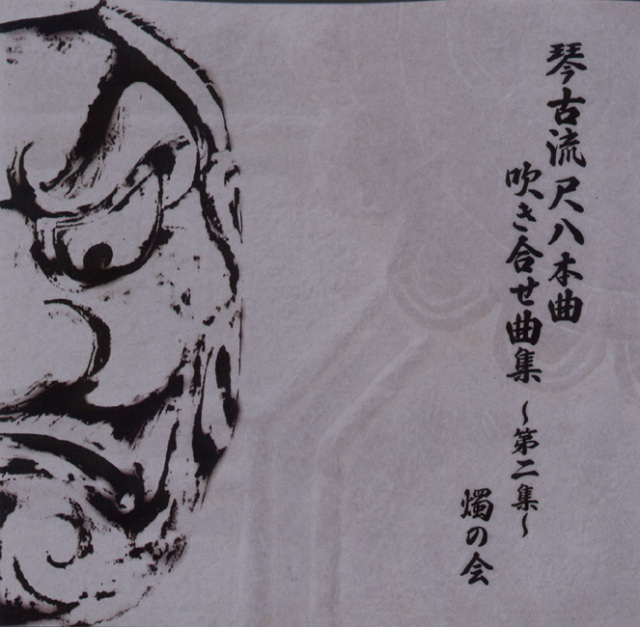 琴古流尺八本曲
吹き合せ曲集 〜第二集〜
燭の会